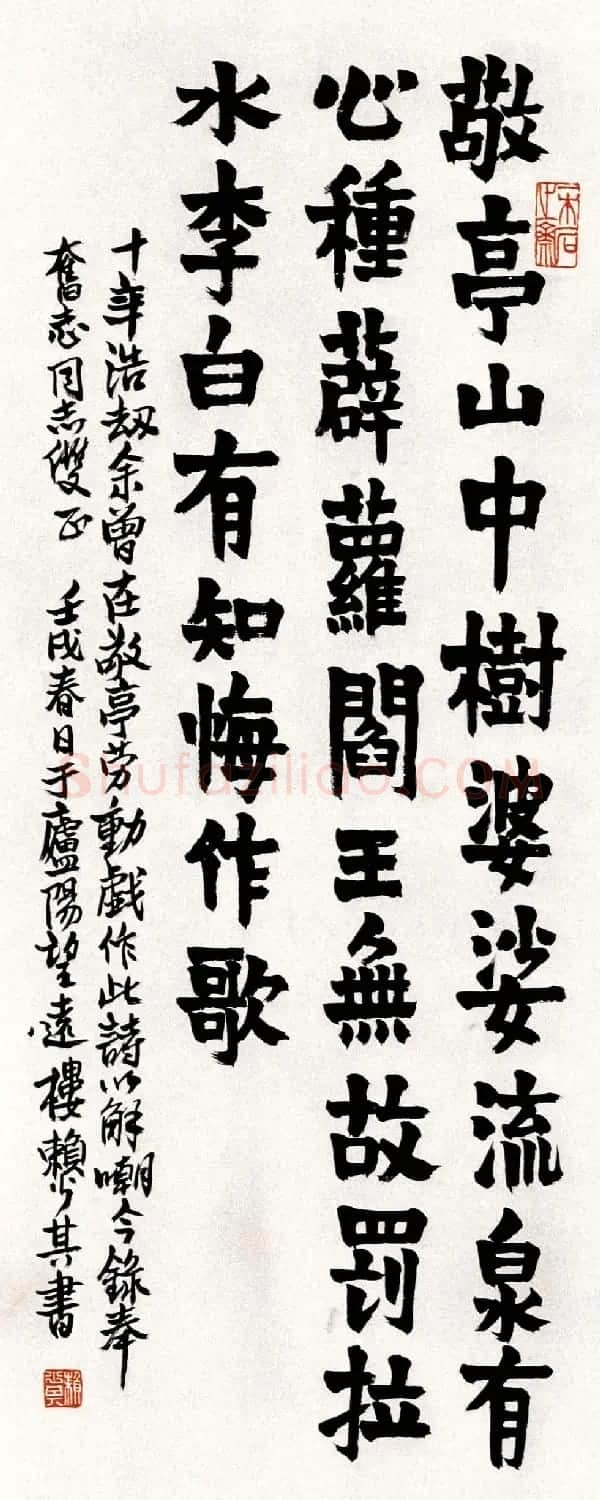 敬亭山中樹婆娑流泉有
心種薜蘿閻王無故罰拉
水李白有知悔作歌
十年浩劫余曾在敬亭劳動戯作此詩以解嘲今錄奉
奮志同志雙正 壬戌春日于廬陽望遠樓賴少其書
木石
Shufaziliao.COM